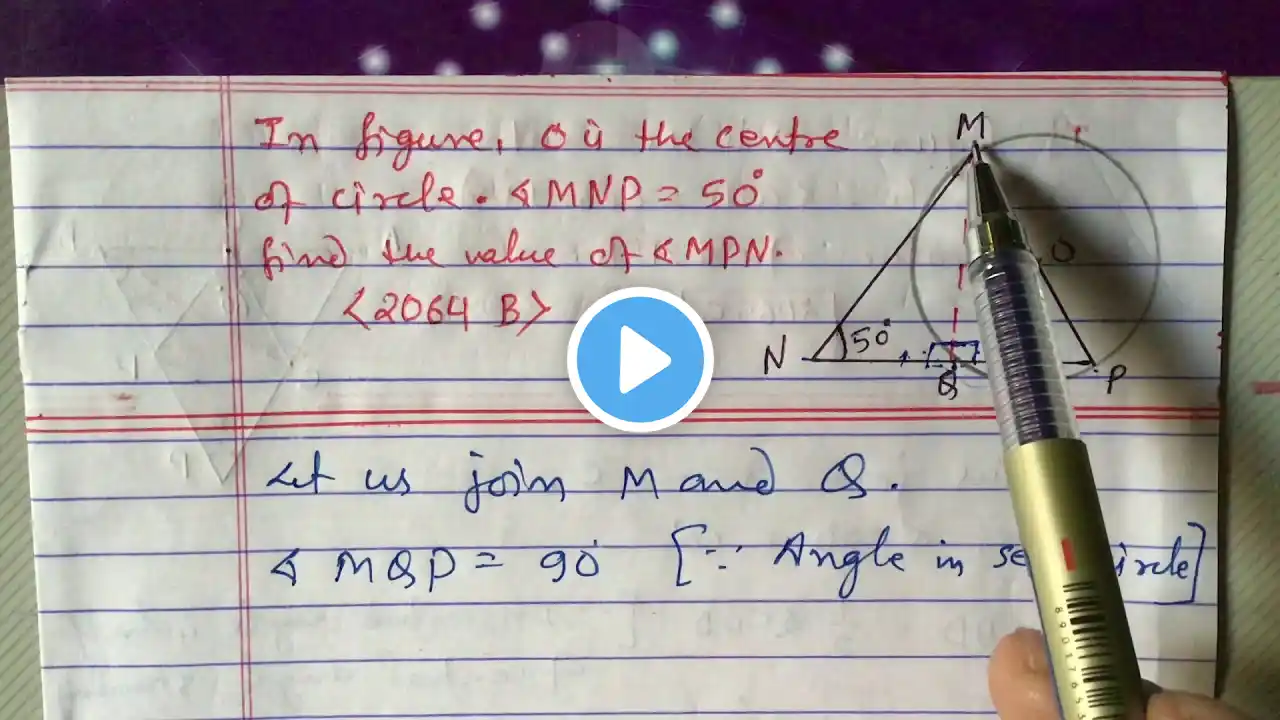 In figure, O is the centre
of circle. ∢MNP = 50°
find the value of ∢MPN.
<2064 B>
M
O
N
50°
Q
P
Let us join M and Q.
∢ MQP = 90° [∵ Angle in circle]